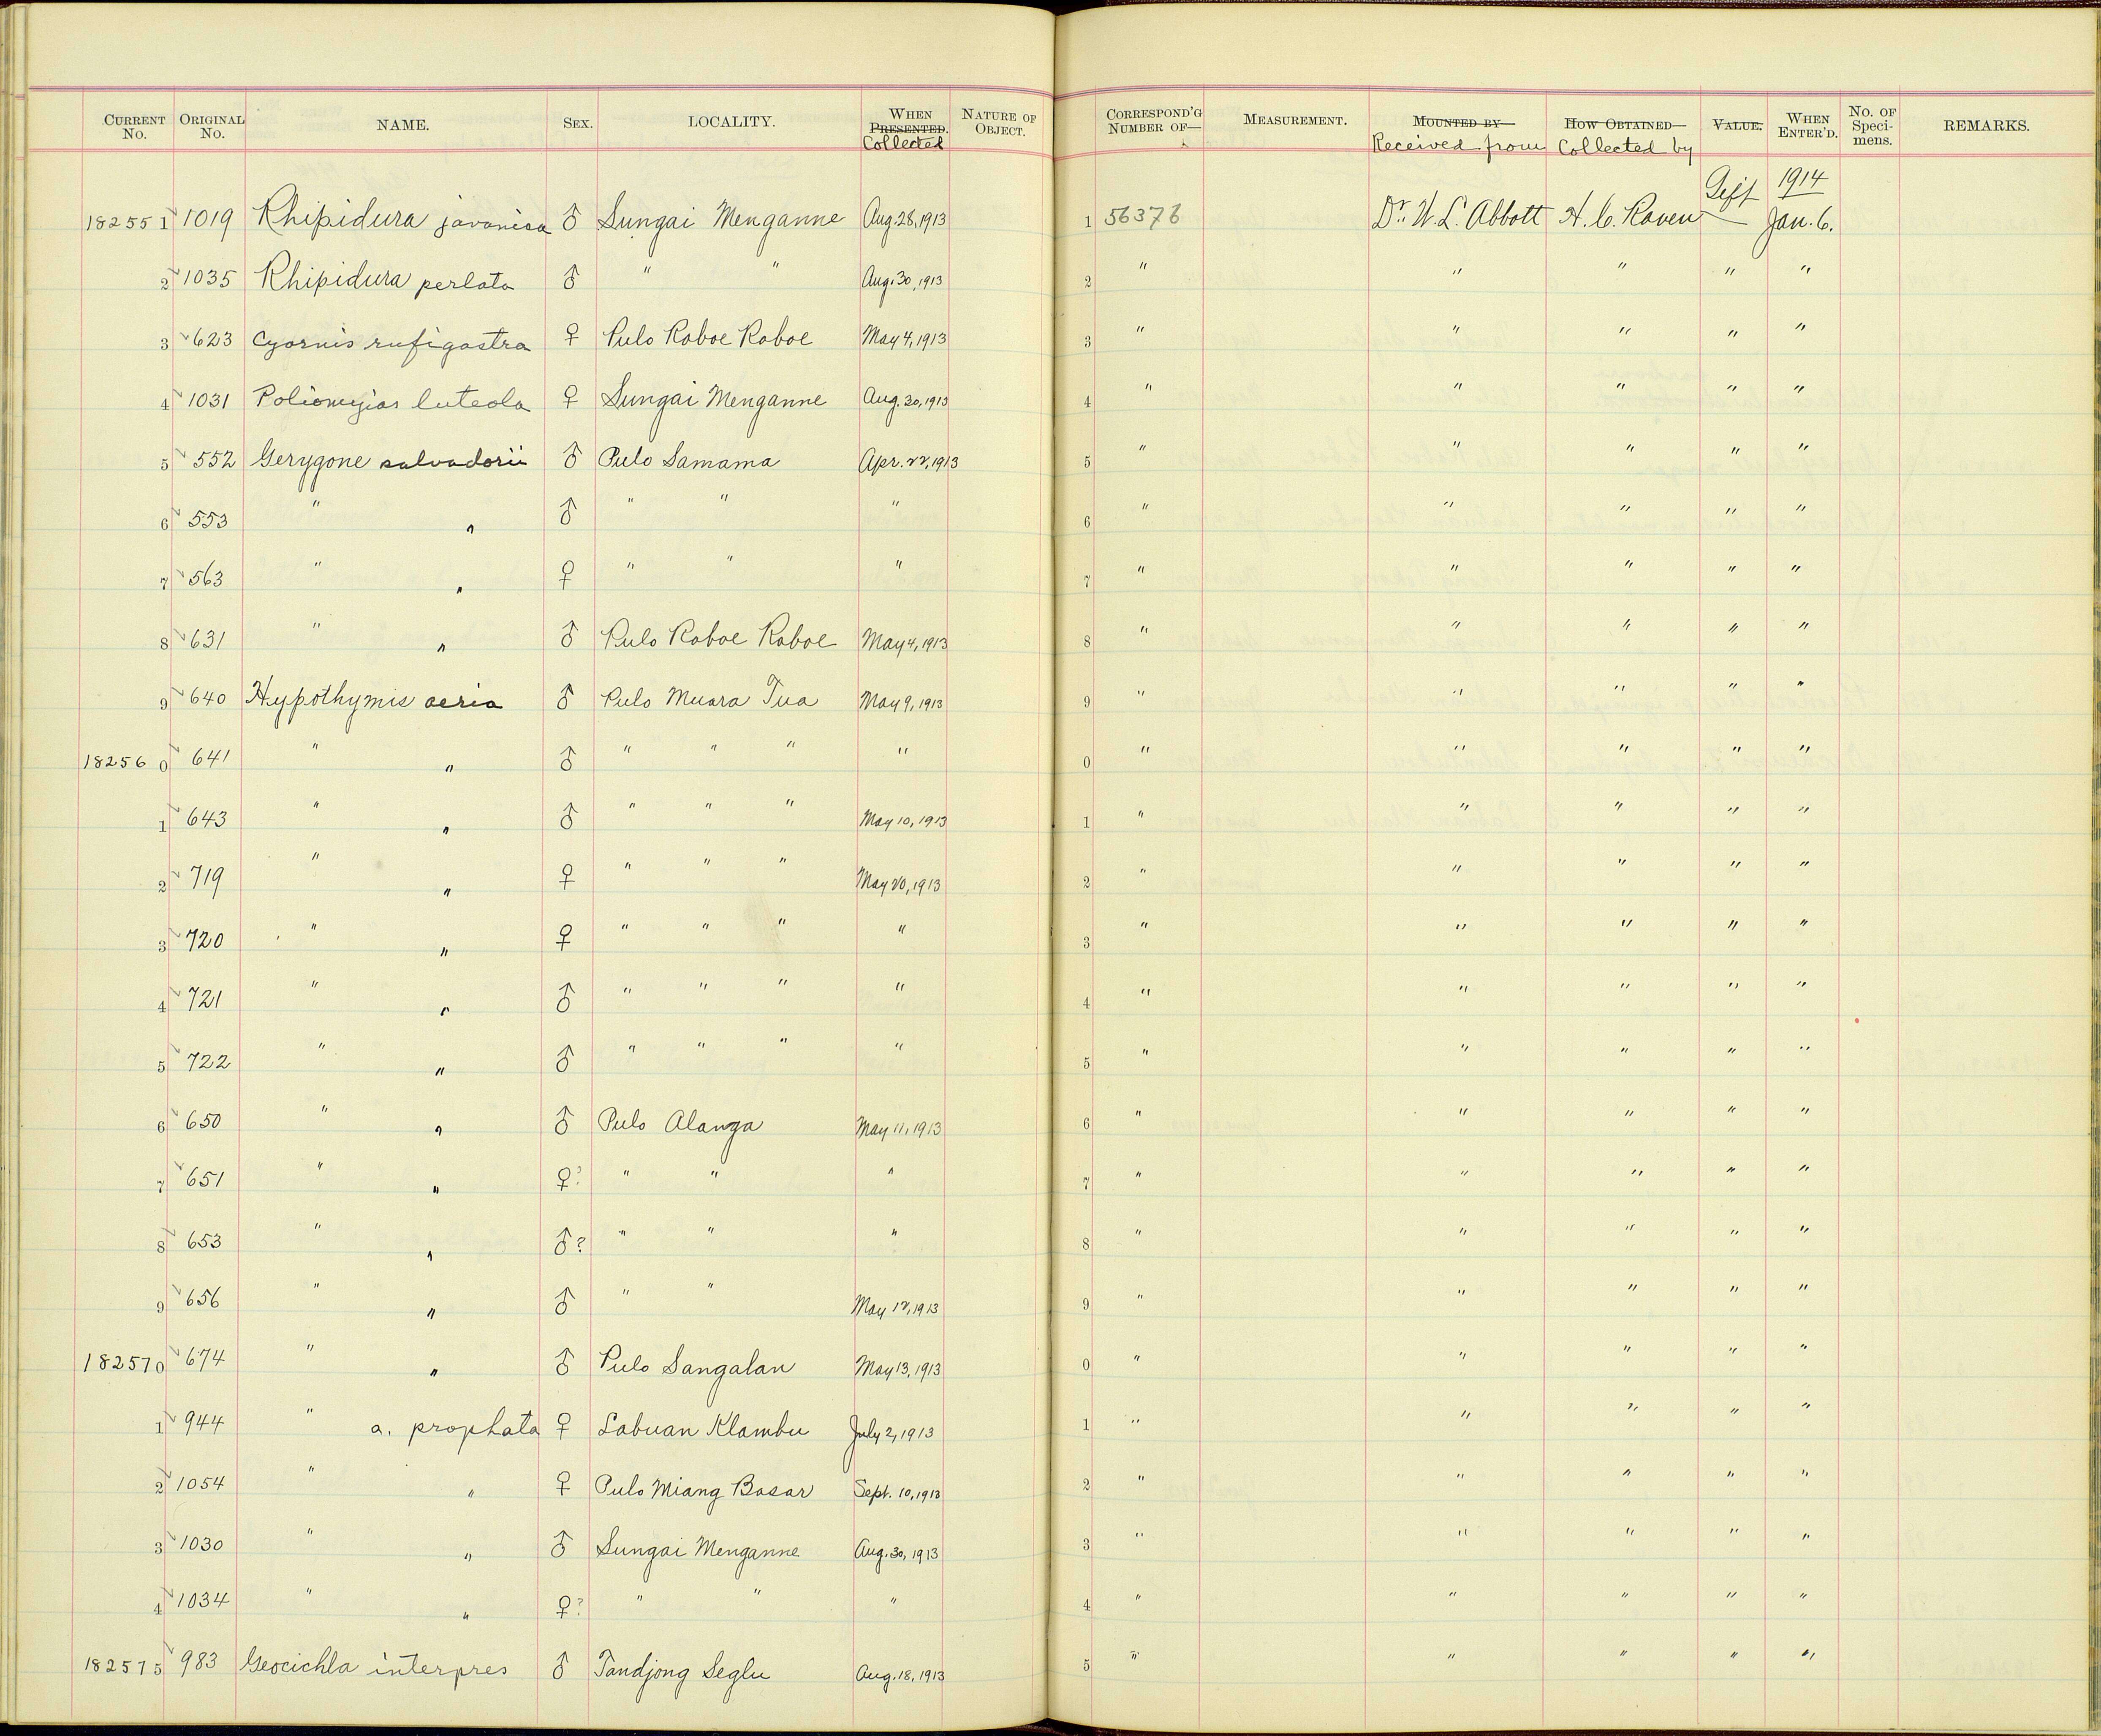 CURRENT No. ORIGINAL No. NAME. SEX. LOCALITY. WHEN PRESENTED. Collected NATURE OF OBJECT. CORRESPOND'G NUMBER OF— MEASUREMENT. MOUNTED BY— Received from HOW OBTAINED— Collected by VALUE. WHEN ENTER'D. No. OF Speci-mens. REMARKS.
182551 1019 Rhipidura javanica ♂ Sungai Menganne Aug. 28, 1913 1 56376 Dr. W. L. Abbott H. C. Raven Gift 1914 Jan. 6.
2 1035 Rhipidura perlata ♂ " " Aug. 30, 1913 2 " " " " "
3 623 Cyornis rufigastra ♀ Pulo Roboe Roboe May 4, 1913 3 " " " " "
4 1031 Poliomyias luteola ♀ Sungai Menganne Aug. 30, 1913 4 " " " " "
5 552 Gerygone salvadorii ♂ Pulo Samama Apr. 22, 1913 5 " " " " "
6 553 " " ♂ " " " 6 " " " " "
7 563 " " ♀ " " " 7 " " " " "
8 631 " " ♂ Pulo Roboe Roboe May 4, 1913 8 " " " " "
9 640 Hypothymis aeria ♂ Pulo Muara Tua May 9, 1913 9 " " " " "
182560 641 " " ♂ " " " " 0 " " " " "
1 643 " " ♂ " " " May 10, 1913 1 " " " " "
2 719 " " ♀ " " " May 20, 1913 2 " " " " "
3 720 " " ♀ " " " " 3 " " " " "
4 721 " " ♂ " " " " 4 " " " " "
5 722 " " ♂ " " " " 5 " " " " "
6 650 " " ♂ Pulo Alanga May 11, 1913 6 " " " " "
7 651 " " ♀? " " " 7 " " " " "
8 653 " " ♂? " " " 8 " " " " "
9 656 " " ♂ " " May 12, 1913 9 " " " " "
182570 674 " " ♂ Pulo Sangalan May 13, 1913 0 " " " " "
1 944 " a. prophata ♀ Labuan Klambu July 2, 1913 1 " " " " "
2 1054 " " ♀ Pulo Miang Basar Sept. 10, 1913 2 " " " " "
3 1030 " " ♂ Sungai Menganne Aug. 30, 1913 3 " " " " "
4 1034 " " ♀? " " " 4 " " " " "
182575 983 Geocichla interpres ♂ Tandjong Seglu Aug. 18, 1913 5 " " " " "